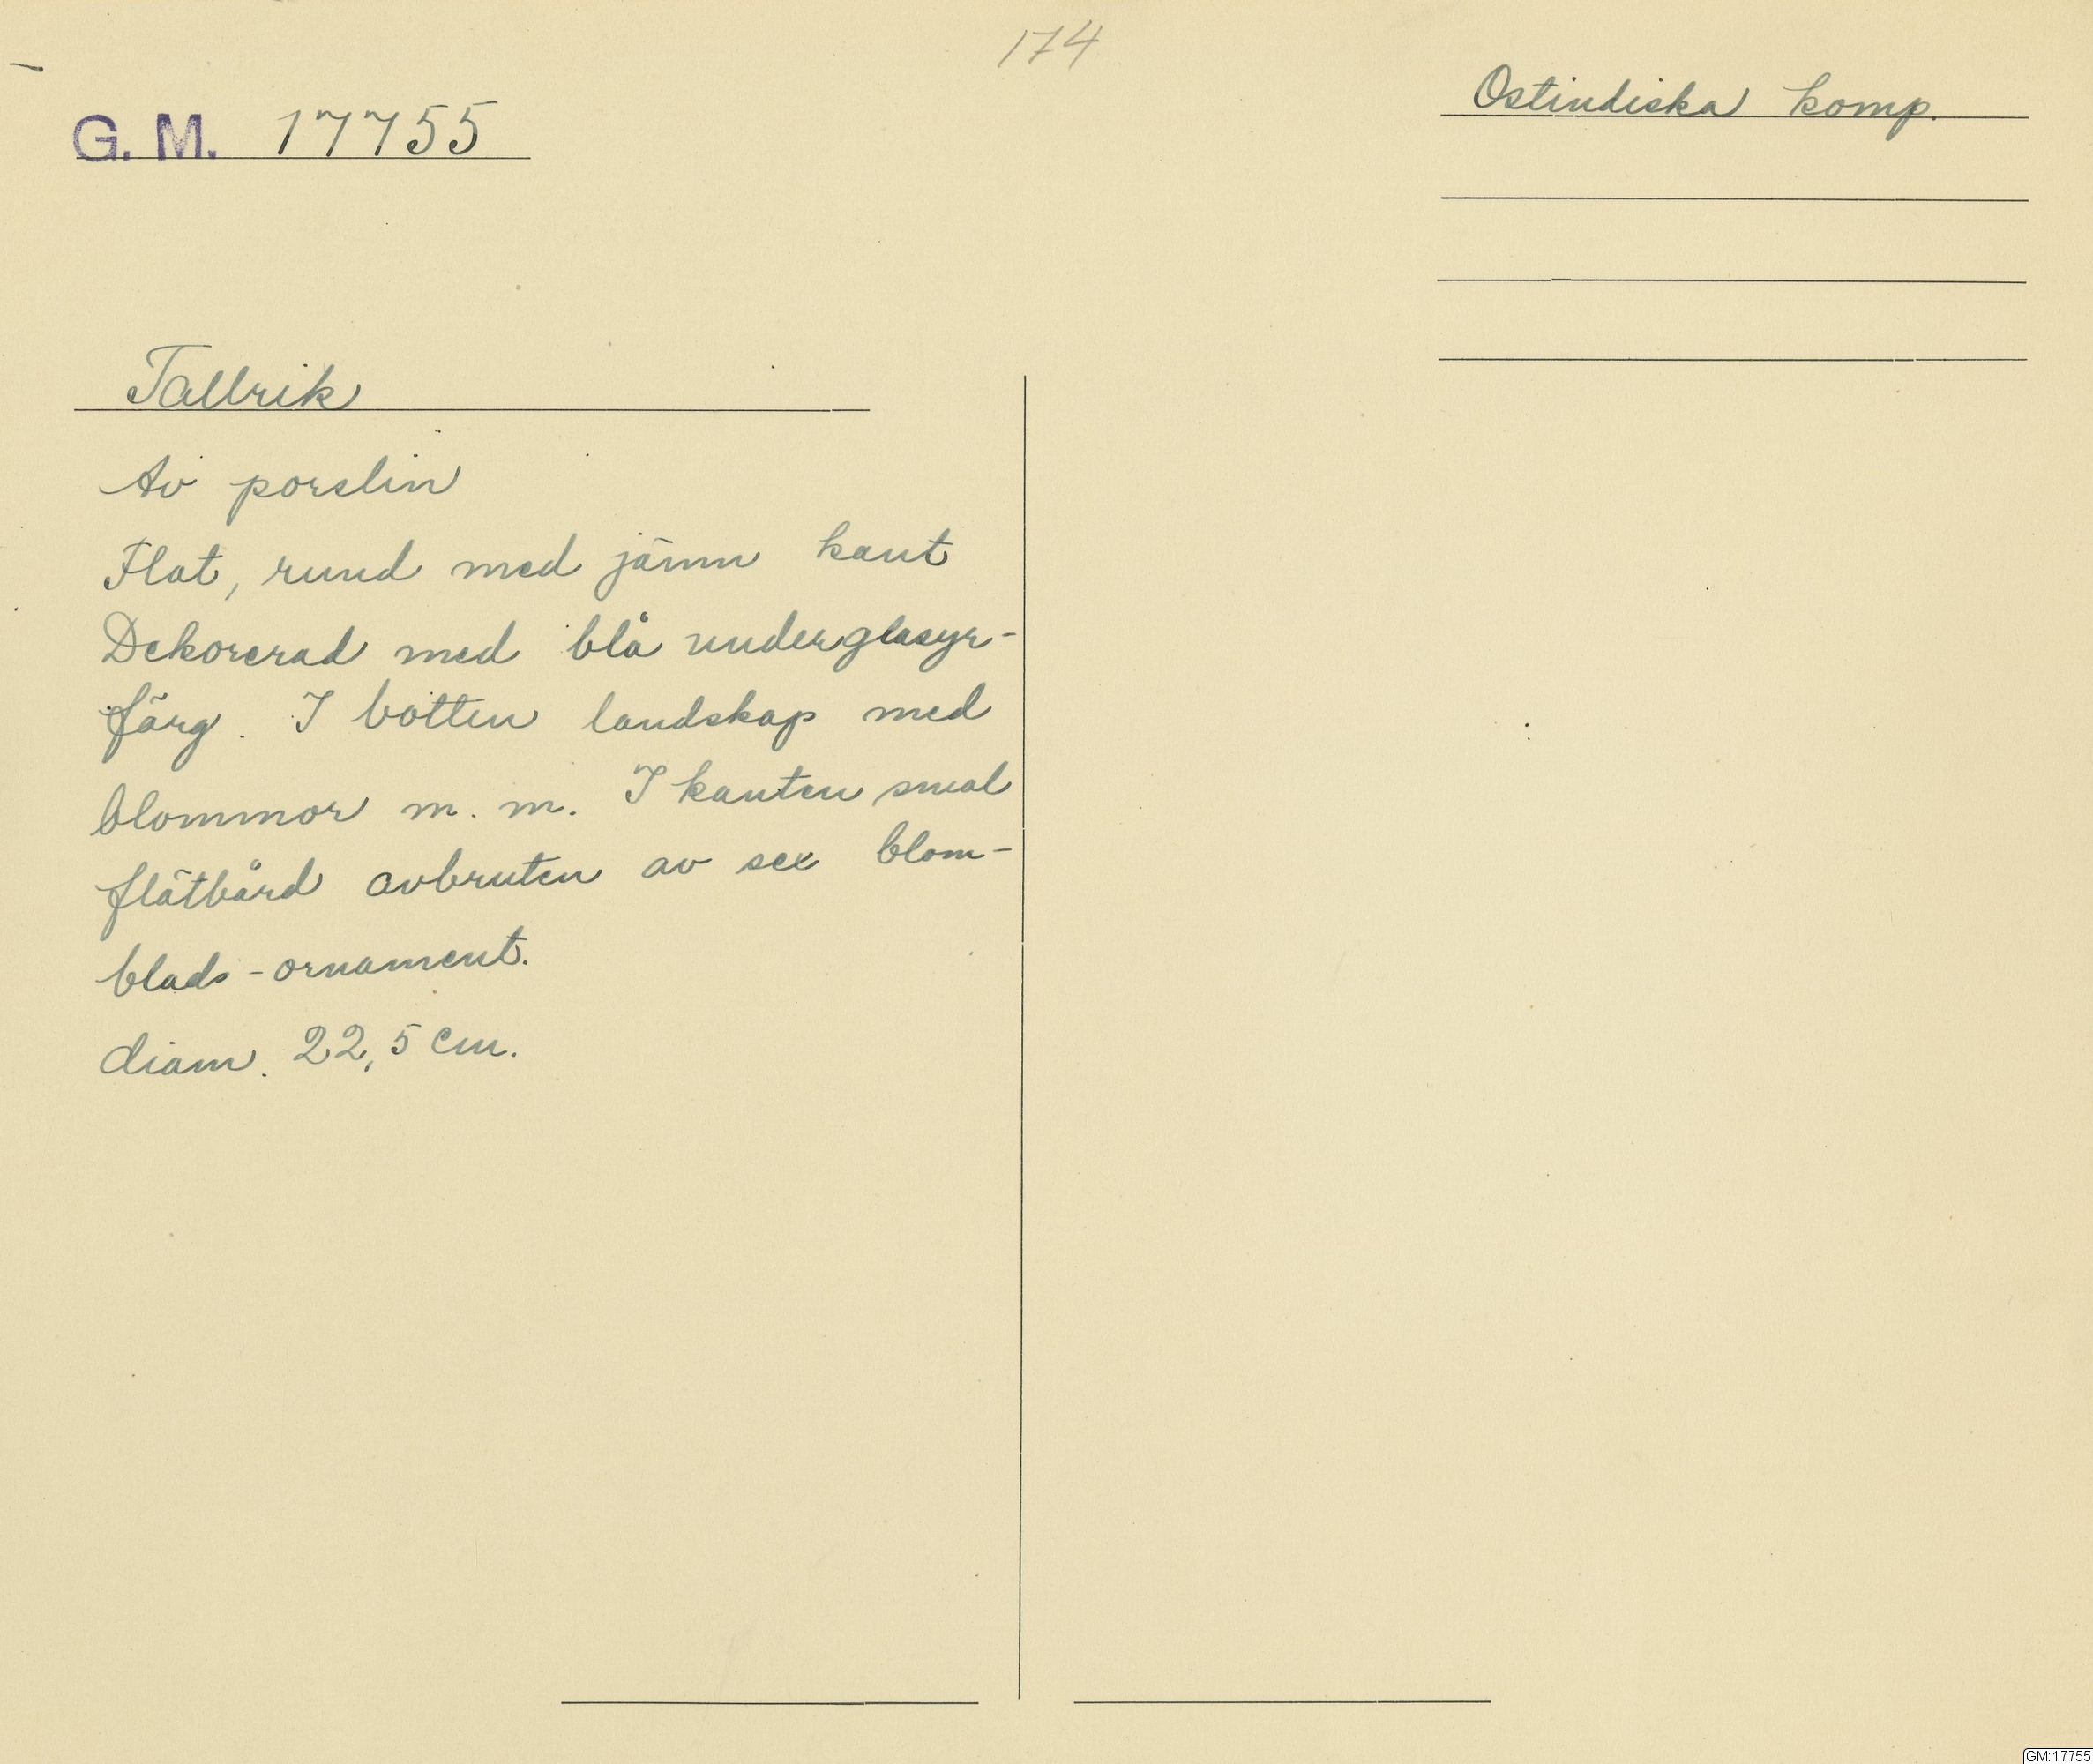 174
G. M. 17755
Ostindiska komp.
Tallrik
Av porslin
Flat, rund med jämn kant
Dekorerad med blå underglasyr-
färg. I botten landskap med
blommor m. m. I kanten smal
flätbård avbruten av sex blom-
blads-ornament.
diam. 22,5 cm.
GM:17755